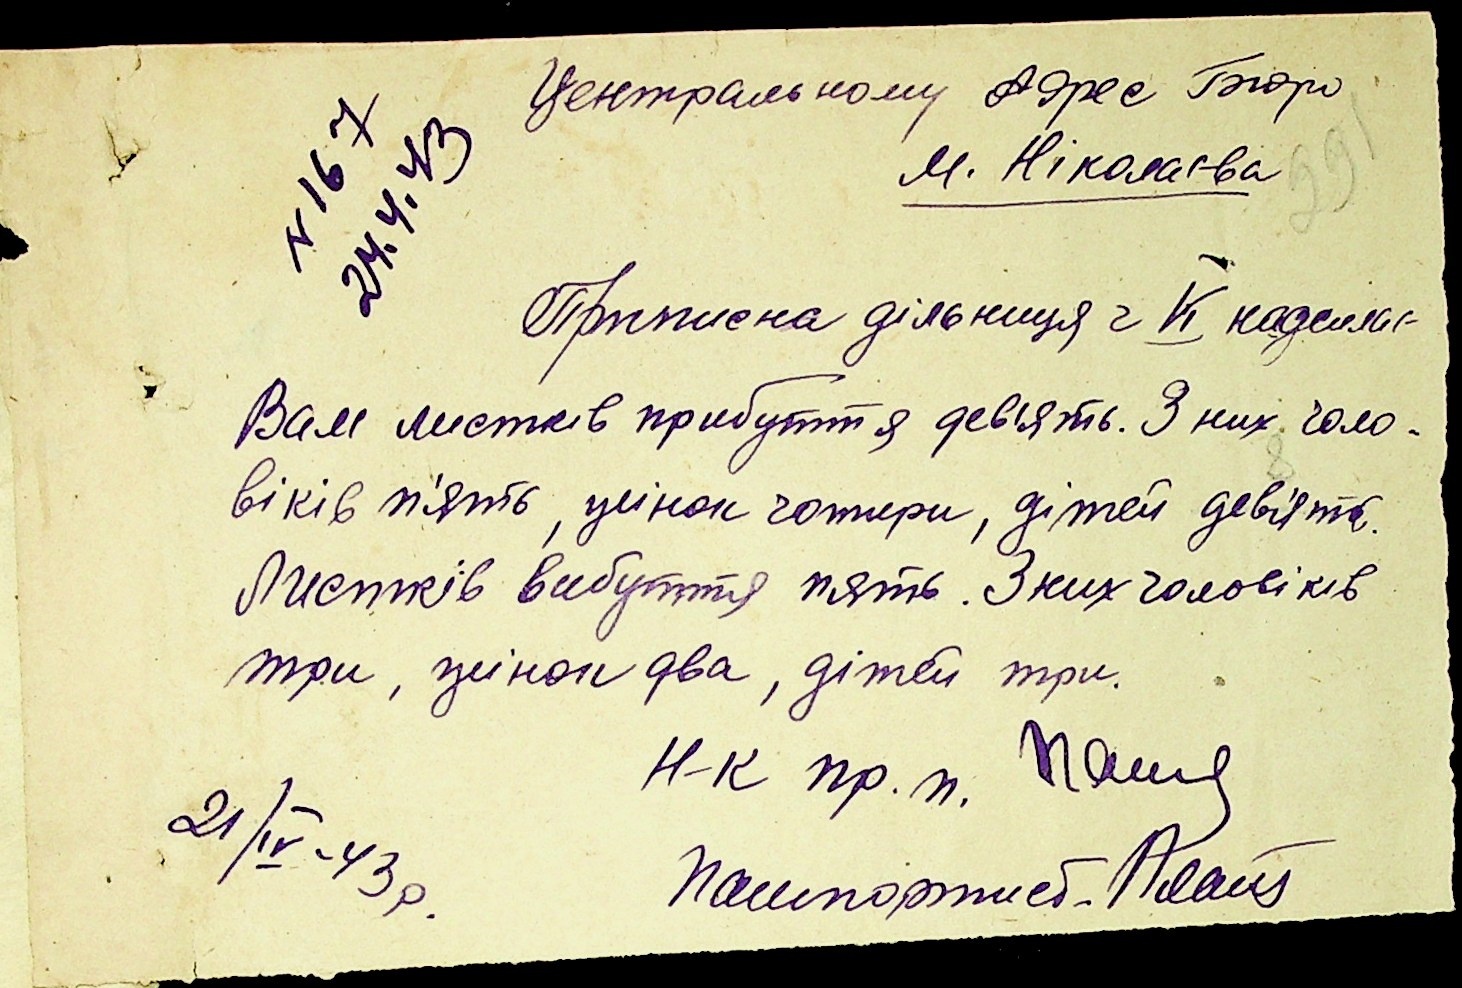 Центральному Адрес Бюро
м. Ніколаєва
291
№ 167
24.4.43
Приписна дільниця ч VI надсилає
Вам листків прибуття девять. З них чоло-
віків п'ять, жінок чотири, дітей дев'ять.
Листків вибуття пять. З них чоловіків
три, жінок два, дітей три.
Н-к пр. п.
21/IV-43 р.
Пашпортист-